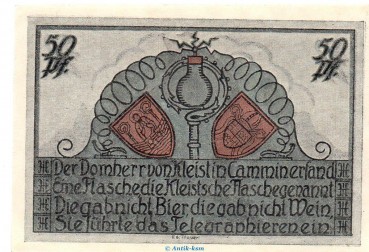 50 Pf.
50 Pf.
Der Domherr von Kleist in Cammin erfand
Eine Flasche die Kleistsche Flasche genannt
Die gab nicht Bier die gab nicht Wein,
Sie führte das Telegraphieren ein
© Antik-ksm